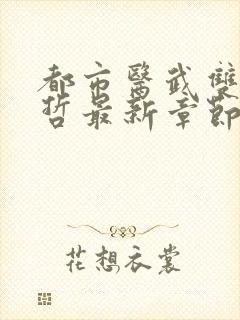 都市醫武雙
哲最新章節
花想衣裳